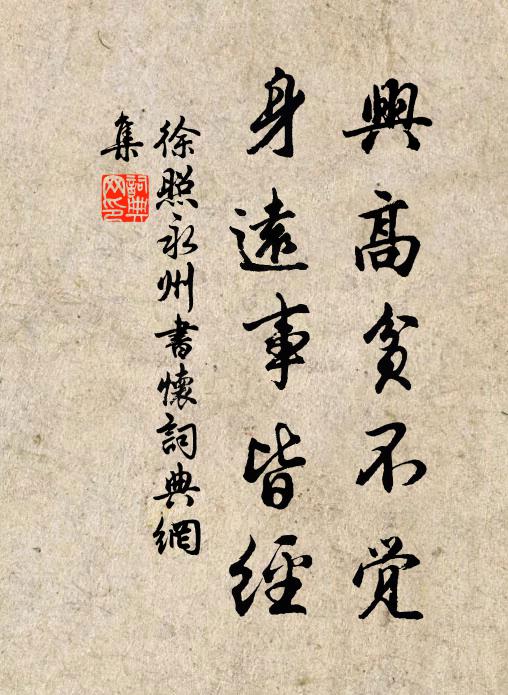 興高貧不覚
身遠事皆經
徐照永州書懷詞典網
集
詞典
网印